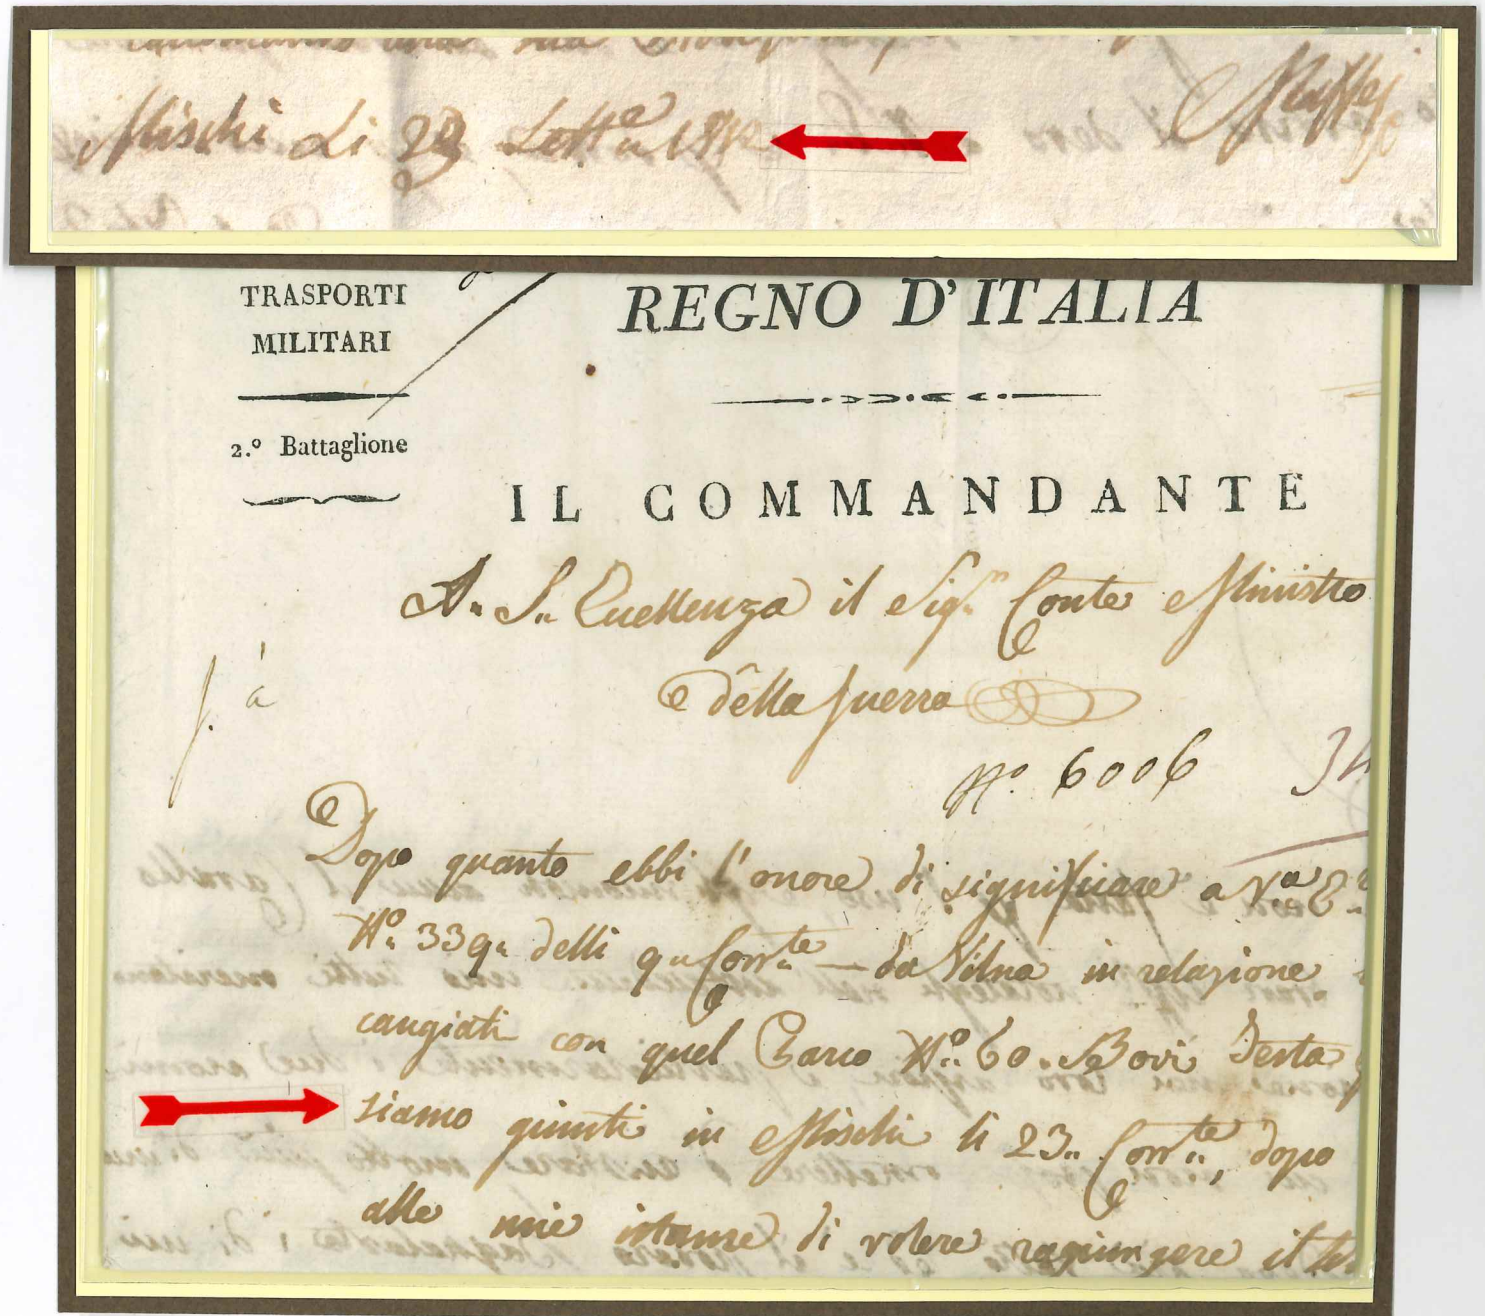 Mischi Li 23 Sett.e 1812
TRASPORTI
MILITARI
2.º Battaglione
REGNO D'ITALIA
IL COMMANDANTE
A. S. Eccellenza il Sig.r Conte Ministro
della guerra
Nº. 6006
34
Dopo quanto ebbi l'onore di significare a V.a E.a
Nº. 339. delli Corr.te da Vilna in relazione
cangiati con quel Parco Nº. 60. Bovi Testa
siamo giunti in Mischi li 23. Corr.te, dopo
alle mie istanze di volere raggiungere il